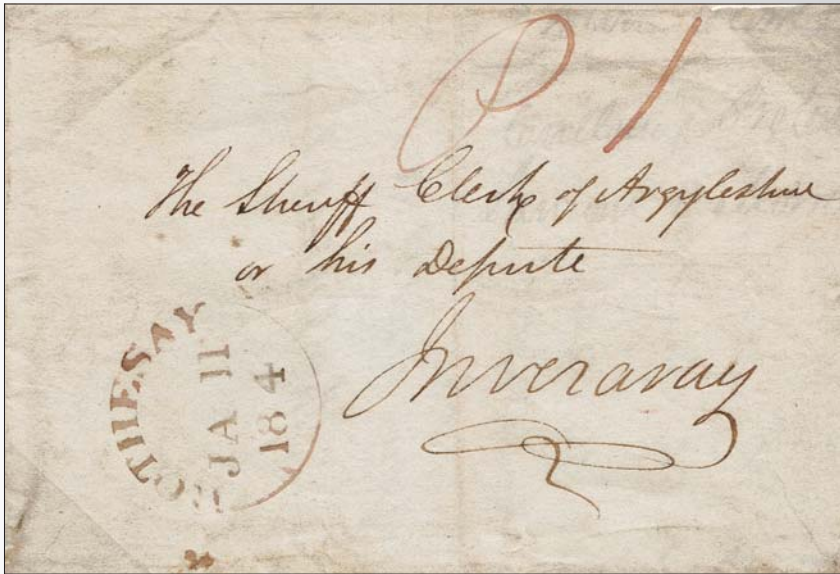 P 1
The Sheriff Clerk of Argyleshire
or his Depute
Inveraray
ROTHESAY
JA 11
184